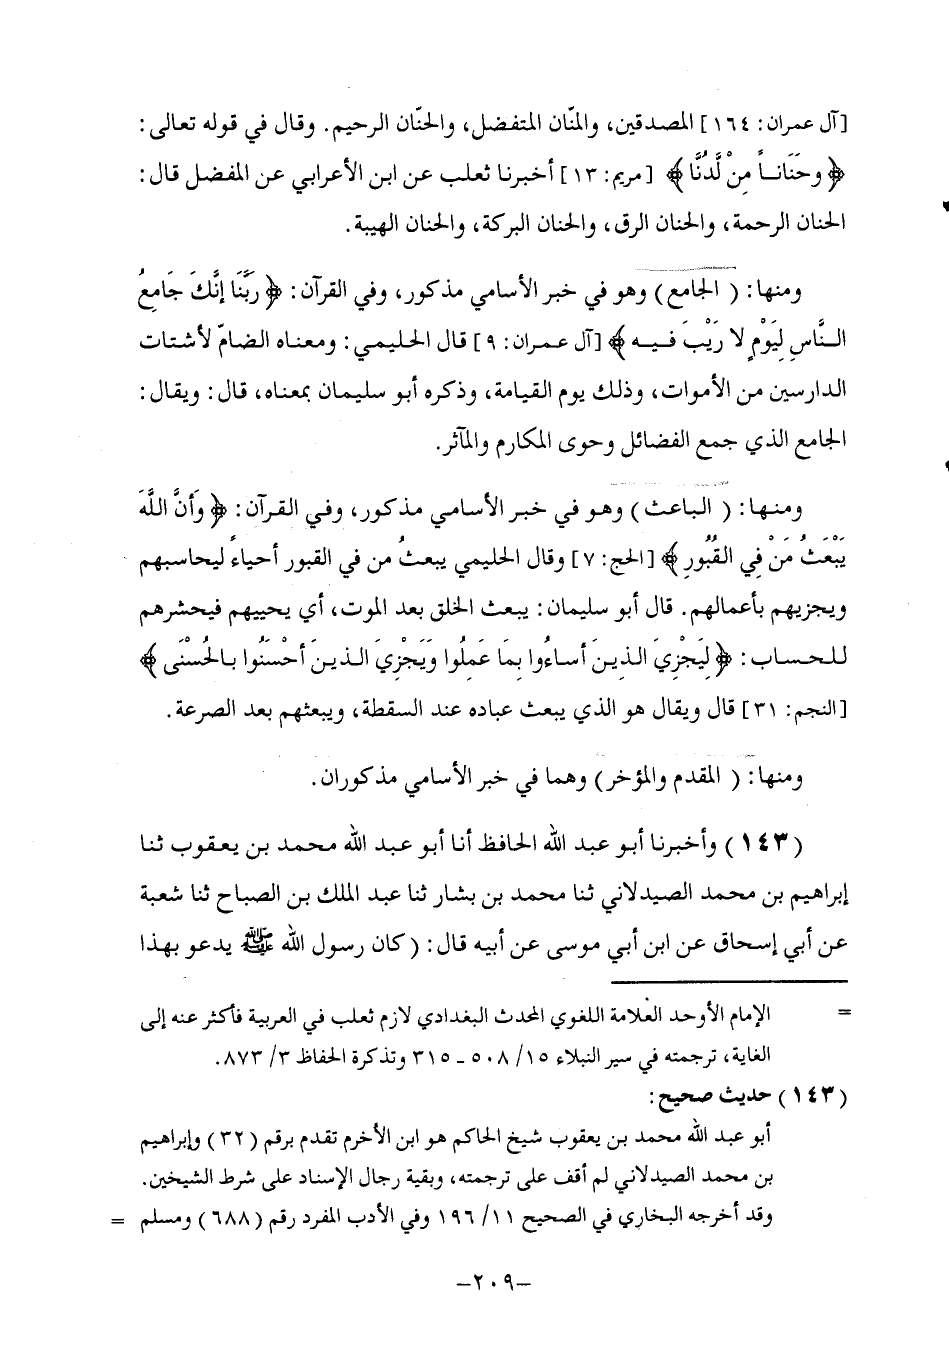 [آل عمران: ١٦٤] المصدقين، والمنّان المتفضل، والحنّان الرحيم. وقال في قوله تعالى:
﴿وحَنَانَـاً مِنْ لَّدُنَّا﴾ [مريم: ١٣] أخبرنا ثعلب عن ابن الأعرابي عن المفضل قال:
الحنان الرحمة، والحنان الرق، والحنان البركة، والحنان الهيبة.
ومنها: (الجامع) وهو في خبر الأسامي مذكور، وفي القرآن: ﴿رَبَّنَا إنَّكَ جَامِعُ
النَّاسِ لِيَوْمٍ لا رَيْبَ فـيـه﴾ [آل عمران: ٩] قال الحليمي: ومعناه الضامّ لأشتات
الدارسين من الأموات، وذلك يوم القيامة، وذكره أبو سليمان بمعناه، قال: ويقال:
الجامع الذي جمع الفضائل وحوى المكارم والمآثر.
ومنها: (الباعث) وهو في خبر الأسامي مذكور، وفي القرآن: ﴿وَأنَّ اللَّهَ
يَبْعَثُ مَنْ فِي القُبُورِ﴾ [الحج: ٧] وقال الحليمي يبعثُ من في القبور أحياءً ليحاسبهم
ويجزيهم بأعمالهم. قال أبو سليمان: يبعث الخلق بعد الموت، أي يحييهم فيحشرهم
للحساب: ﴿لِيَجْزِيَ الذينَ أساءُوا بِمَا عَمِلُوا وَيَجْزِيَ الذينَ أحْسَنُوا بالحُسْنَى﴾
[النجم: ٣١] قال ويقال هو الذي يبعث عباده عند السقطة، ويبعثهم بعد الصرعة.
ومنها: (المقدم والمؤخر) وهما في خبر الأسامي مذكوران.
(١٤٣) وأخبرنا أبو عبد الله الحافظ أنا أبو عبد الله محمد بن يعقوب ثنا
إبراهيم بن محمد الصيدلاني ثنا محمد بن بشار ثنا عبد الملك بن الصباح ثنا شعبة
عن أبي إسحاق عن ابن أبي موسى عن أبيه قال: (كان رسول الله ﷺ يدعو بهذا
= الإمام الأوحد العلامة اللغوي المحدث البغدادي لازم ثعلب في العربية فأكثر عنه إلى
الغاية، ترجمته في سير النبلاء ١٥/ ٥٠٨ ـ ٣١٥ وتذكرة الحفاظ ٣/ ٨٧٣.
(١٤٣) حديث صحيح:
أبو عبد الله محمد بن يعقوب شيخ الحاكم هو ابن الأخرم تقدم برقم (٣٢) وإبراهيم
بن محمد الصيدلاني لم أقف على ترجمته، وبقية رجال الإسناد على شرط الشيخين.
وقد أخرجه البخاري في الصحيح ١١/ ١٩٦ وفي الأدب المفرد رقم (٦٨٨) ومسلم =
–٢٠٩–